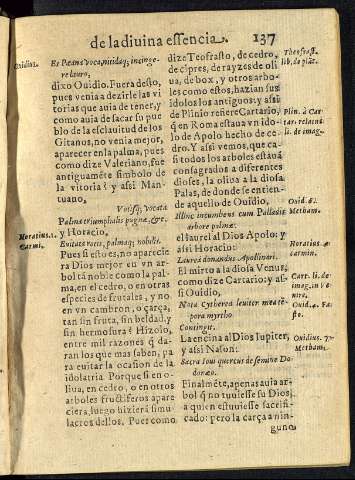 de la diuina essencia. 137
Ouidius.
Et Peane voca, nitidaq; incinge-
re lauro,
dixo Ouidio. Fuera desto,
pues venia a dezirle las vi
torias que auia de tener, y
como auia de sacar su pue
blo de la esclauitud de los
Gitanos, no venia mejor,
aparecer en la palma, pues
como dize Valeriano, fue
antiguamẽte simbolo de
la vitoria? y assi Man-
tuano,
Palma triumphalis pugnæ, &c.
Horatius. 1.
Carmi.
y Horacio,
palmaq; nobilis.
Pues si esto es, no aparecie
ra Dios mejor en vn ar
bol tã noble como la pal-
ma, en el cedro, o en otras
especies de frutales, y no
en vn cambron, o çarça,
tan sin fruta, sin beldad, y
sin hermosura? Hizolo,
entre mil razones q̃ da-
ran los que mas saben, pa
ra euitar la ocasion de la
idolatria. Porque si en o-
liua, en cedro, o en otros
arboles fructiferos apare
ciera, luego hizierã simu-
lacros dellos. Pues como
dize Teofrasto, de cedro,
de cipres, de rayzes de oli
ua, de box, y otros arbo-
les como estos, hazian sus
idolos los antiguos: y assi
de Plinio refiere Cartario,
q̃ en Roma estaua vn ido-
lo de Apolo hecho de ce-
dro. Y assi vemos, que ca
si todos los arboles estauã
consagrados a diferentes
dioses, la oliua a la diosa
Palas, de donde se entien-
de aquello de Ouidio,
Illic incumbens cum Palladis
arbore palmæ.
el laurel al Dios Apolo: y
assi Horacio:
Laurea donandus Apollinari.
El mirto a la diosa Venus,
como dize Cartario: y as-
si Ouidio,
Contingit.
La encina al Dios Iupiter,
y assi Nason:
Sacra Ioui quercus de semine Do-
donæo.
Finalmẽte, apenas auia ar
bol q̃ no tuuiesse su Dios,
a quien estuuiesse sacrifi-
cado: pero la çarça a nin-
guno
Theofrast.
lib. de plãt.
Plin. à Car-
tar. relatus
li. de imag.
Ouid. 6.
Metham.
Horatius. 4.
carmin.
Cart. li. de
imag. in Ve
nere.
Ouid. 4. Fa-
sto.
Ouidius. 7.
Metham.